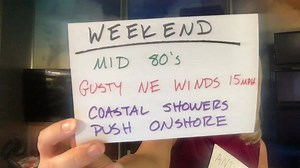 WEEKEND
MID 80's
GUSTY NE WINDS 15MPH
COASTAL SHOWERS
PUSH ONSHORE